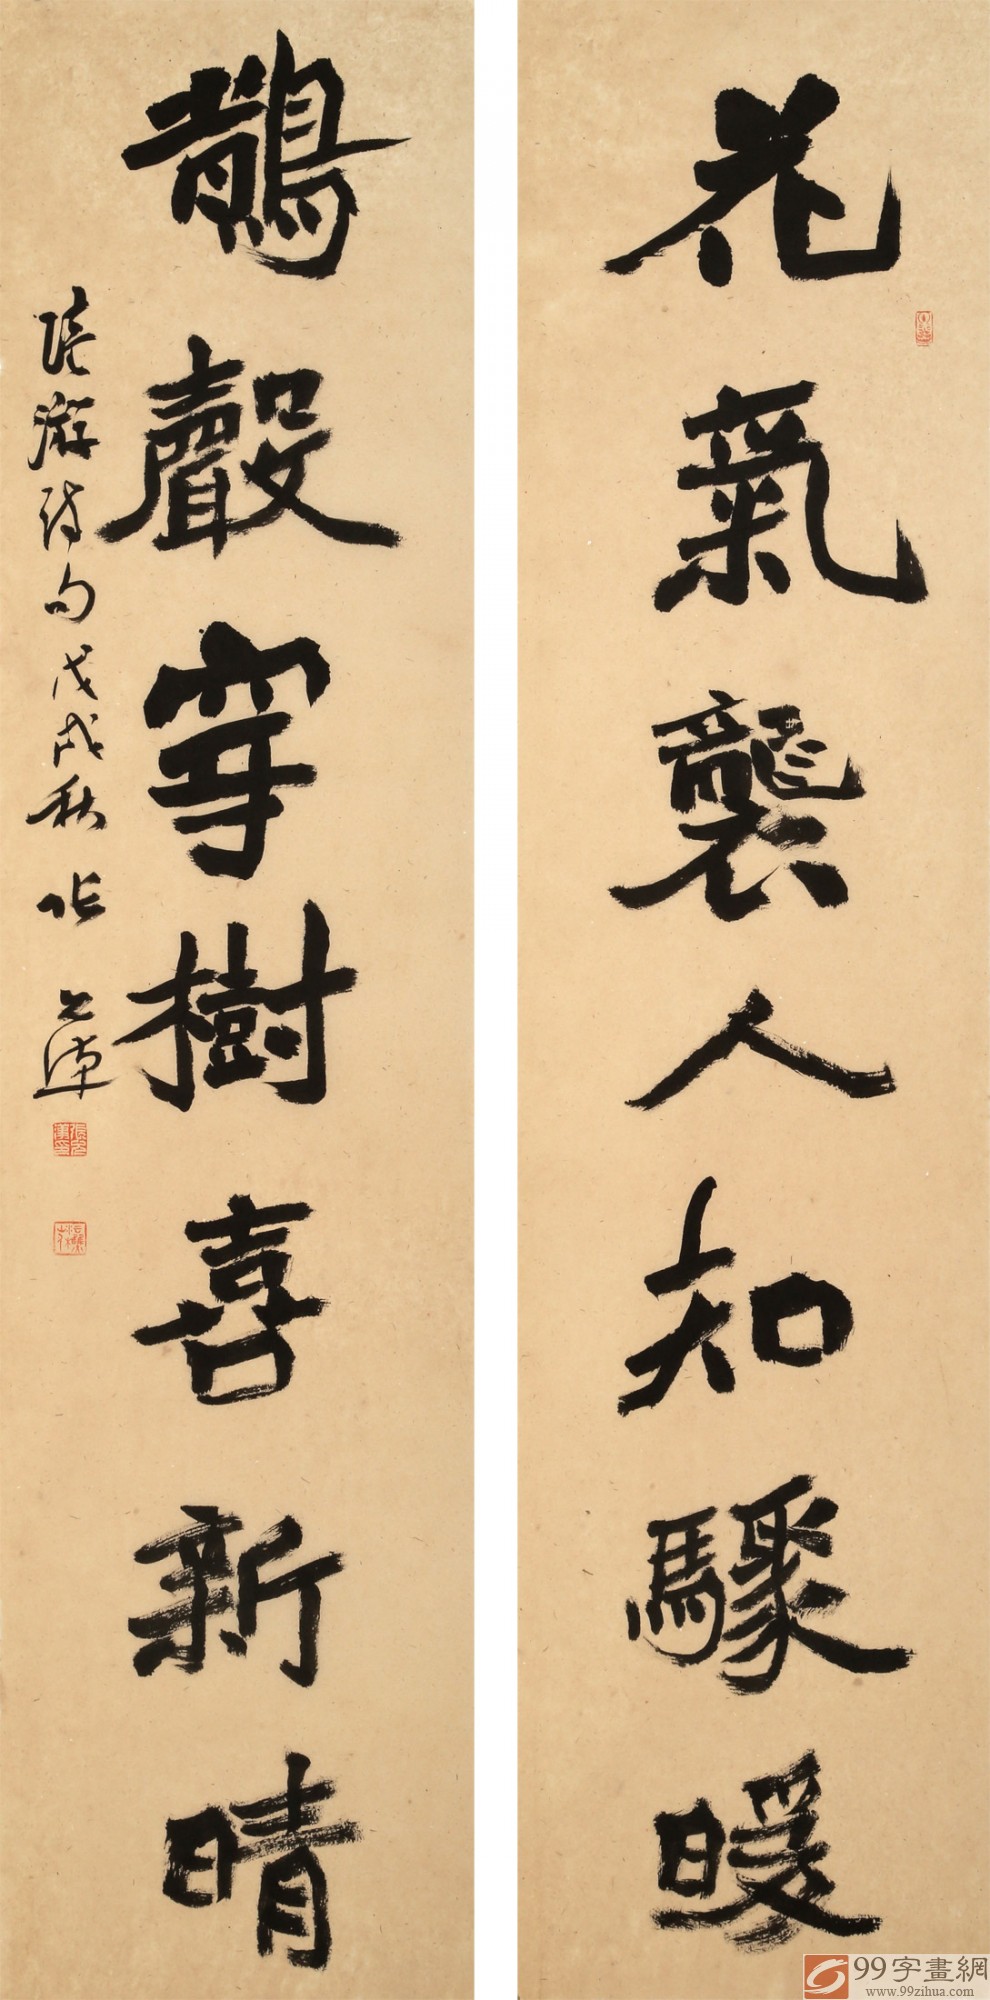 花氣襲人知驟暖
鵲聲穿樹喜新晴
陸游詩句戊戌秋张公運
99字畫網
www.99zihua.com